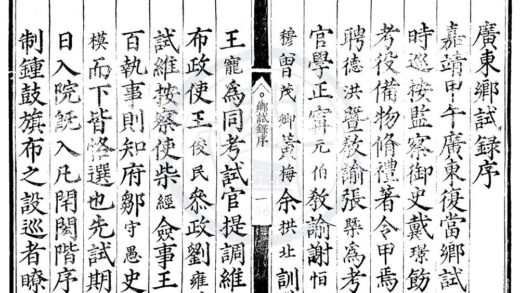 廣東鄉試録序
嘉靖甲午廣東復當鄉試
時廵按監察御史戴璟飭
考役備物脩禮著令甲焉
聘德洪暨敎諭張槩爲考
官學正甯元伯敎諭謝恒
穆曽茂卿黄梅余拱北訓
鄉試録序
一
王寵爲同考試官提調維
布政使王俊民叅政劉雍
試維按察使柴經僉事王
百執事則知府鄒守愚史
模而下皆恪選也先試期
日入院旣入凡閈閎階序
制鍾鼓旗布之設廵者瞭